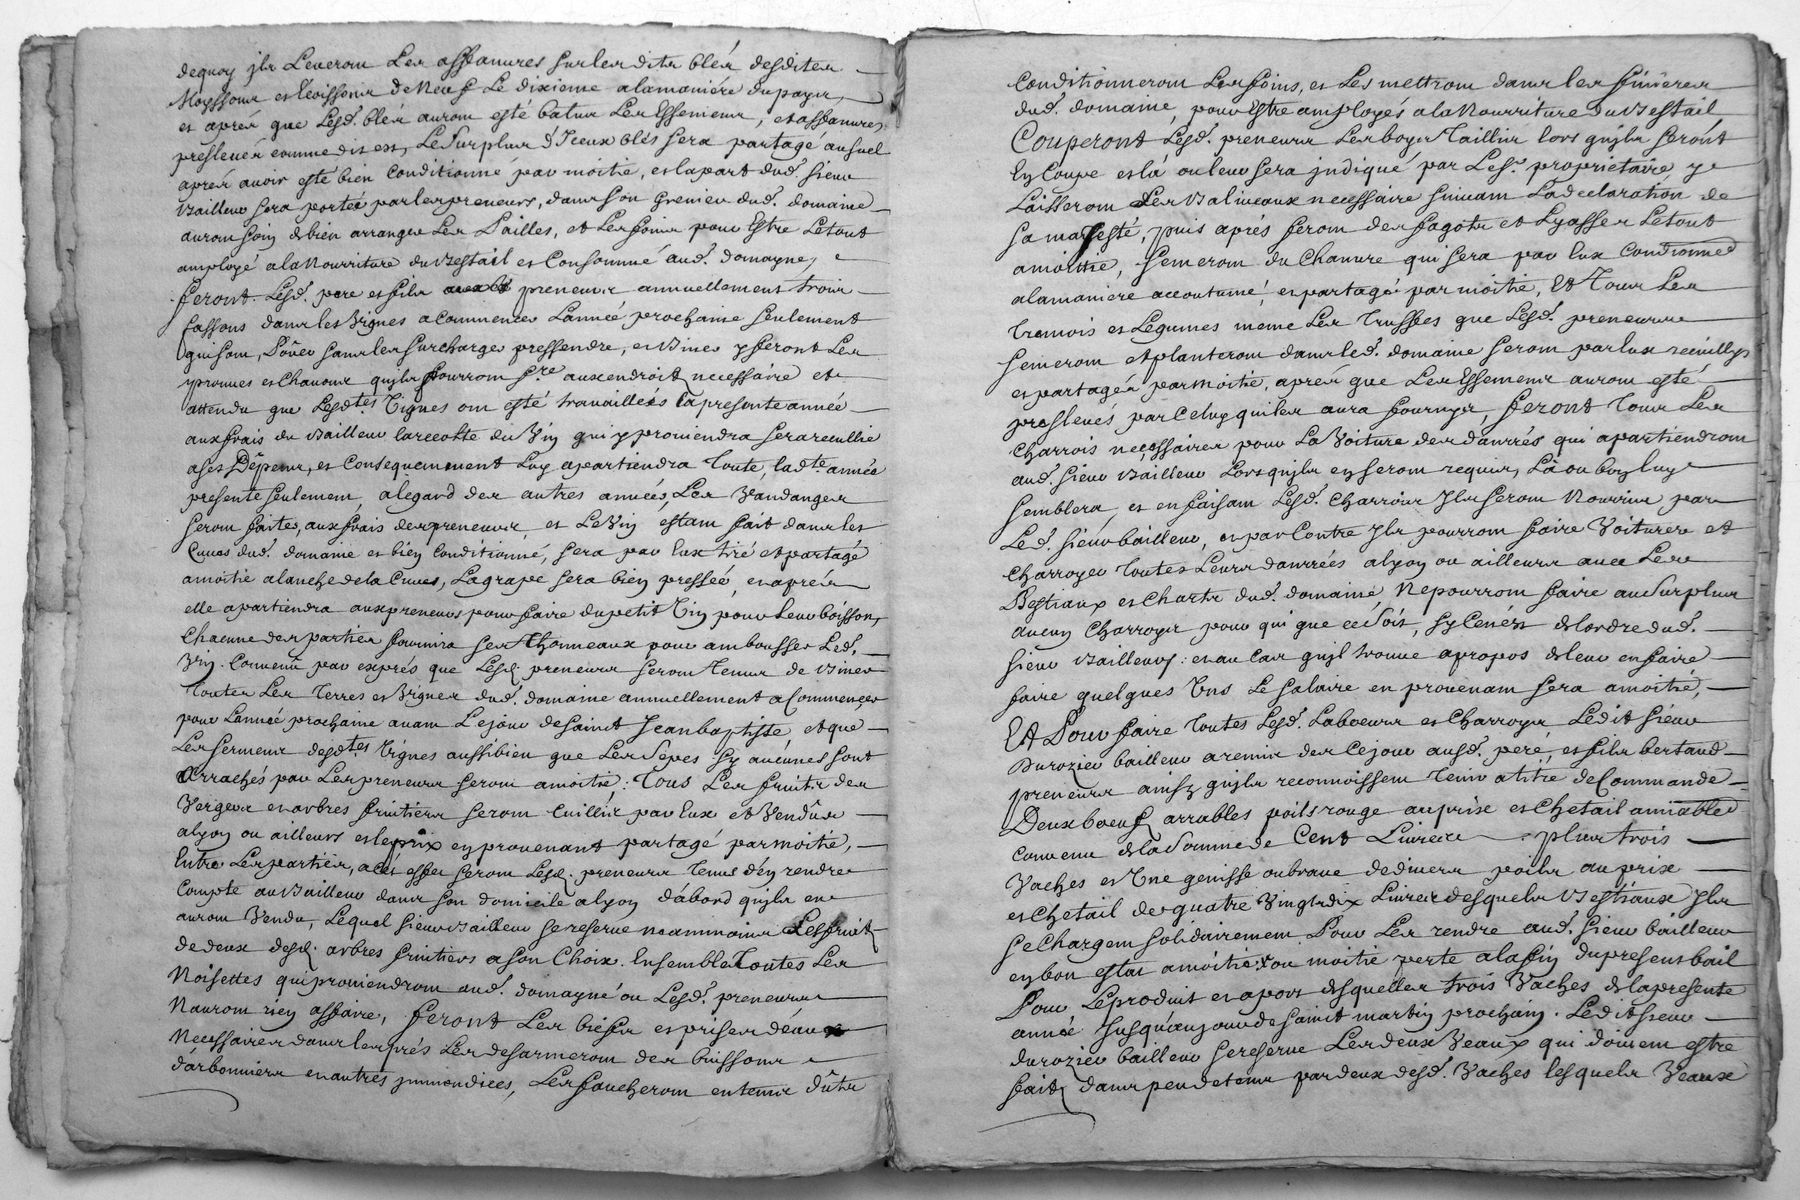 dequoy ilz Leveront Les affanures surlesdits bléz desdites
Moyssons et Levissons de Neuf Le dixieme alamaniére dupayis
et aprés que Lesd. bléz auront esté batus Les Essemens, et affanures
preslevéz comme dit est, Le Surplus d'Iceux blés sera partagé ausuel
aprés avoir esté bien Conditionné par moitié, et lapart dud. sieur
Bailleur sera portée parlespreneurs, dans son Grenier dud. domaine
auront soin de bien arranger Les Pailles, et Les foins pour Estre Letout
amployé ala Nourriture du Bestail et Consommé aud. domayne,
feront Lesd. pere et fils preneurs annuellement trois
fassons dans les Vignes a Commencer L'année prochaine seulement
quisont, Poüer sans les surcharger pressendre, et Biner y feront Les
provues et Chavoux quilz pourront f.re aux endroits necessaire et
attendu que Lesdtes Vignes ont esté travaillées la presente année
aux frais du Bailleur la recolte du Vin qui y proviendra sera recullie
a ses Dépens, et Consequemment Luy apartiendra toute, ladte année
presente seulement, alegard des autres années, Les Vandanges
seront faites, aux frais des preneurs et Le Vin estant fait dans les
Cuves dud. domaine et bien Conditionné, sera par Eux tiré et partagé
amoitié alanche de la Cuves, Lagrape sera bien presseé, et aprés
elle apartiendra aux preneurs pour faire du petit Vin pour Leur boisson,
Chacune des parties fournira ses thonneaux pour ambousser Led.
Vin. Convenü par exprés que Lesd. preneurs seront tenus de Biner
toutes Les Terres et Vignes dud. domaine annuellement a Commencer
pour L'année prochaine avant Le jour de saint Jean baptiste, et que
Les serments desdtes Vignes aussi bien que Les Sepes sy aucunes sont
Arrachés par Les preneurs seront amoitié : Tous Les fruits des
Vergers et arbres fruitiers seront Cuillis par Eux et Vendüs
alyon ou ailleurs et leprix en provenant partagé par moitié,
Entre Les parties, acét effet seront Lesd. preneurs Tenus d'en rendre
Compte au Bailleur dans son domicile alyon d'abord quilz en
auront Vendu, Lequel sieur Bailleur se reserve neammoins Les fruits
de deux desd. arbres fruitiers a son Choix. Ensemble Toutes Les
Noisettes qui proviendront aud. domayne ou Lesd. preneurs
N'auront rien affaire, feront Les biefs et prises d'eau
Necessaires dans les prés Les desarmeront des buissons
d'arbonniers et autres immondices, Les faucheront en temps dûts
Conditionneront Les foins, et Les mettront dans les finiéres
dud. domaine, pour Estre amployés ala Nourriture du Bestail
Couperont Lesd. preneurs Les boys Taillis lors quilz seront
En Coupe et la ou leur sera indiqué par Led. sr. proprietaire, y
Laisseront Les Baliveaux necessaire suivant La declaration de
sa majesté, puis aprés feront des fagots et Lyasses Letout
amoitié, semeront du Chanvre qui sera par Eux Conditionné
alamaniere accoutumé, et partagé par moitié, Et Tous Les
Tremois et Legumes meme Les Truffles que Lesd. preneurs
semeront et planteront dans led. domaine seront par Eux recuillys
et partagés par moitié, aprés que Les Essemens auront esté
preslevés par Celuy qui les aura fournys, feront Tous Les
Charrois necessaires pour La Voiture des danrrés qui apartiendront
aud. sieur Bailleur Lors quilz en seront requis, Là ou bon luy
semblera, et en faisant Lesd. Charrois Ilz seront Nourris par
Led. sieur bailleur, et par Contre Ilz pourront faire Voiturer et
Charroyer toutes Leurs danrrées alyon ou ailleurs avec Les
Bestiaux et Charts dud. domaine Ne pourront faire au Surplus
aucun Charroys pour qui que ce Soit, sy Cen'est de lordre dud.
sieur Bailleur : et au Cas quil trouve apropos de leur en faire
faire quelques Uns Le salaire en provenant sera amoitié,
Et Pour faire toutes Lesd. Laboeurs et Charroys Ledit sieur
Durozier bailleur a remis des Cejour ausd. peré, et fils bertaud
preneurs ainsy quilz reconnoissent tenir atitre de Commande
Deux boeufs arrables poils rouge au prix et Chetail amiable
Convenu de la Somme de Cent Livres plus trois
Vaches et Une genisse ou brave de divers poils au prix
et Chetail de quatre Vingtdix Livres desquels Bestiaux Ilz
se Chargent solidairement Pour Les rendre aud. sieur bailleur
en bon estat amoitié x ou moitié perte ala fin du present bail
Pour Leproduit et aport desquelles trois Vaches de la presente
année jusqu'au jour de saint martin prochain. Ledit sieur
durozier bailleur se reserve Les deux Veaux qui doivent estre
faits dans peu de tems par deux desd. Vaches lesquels Veaux